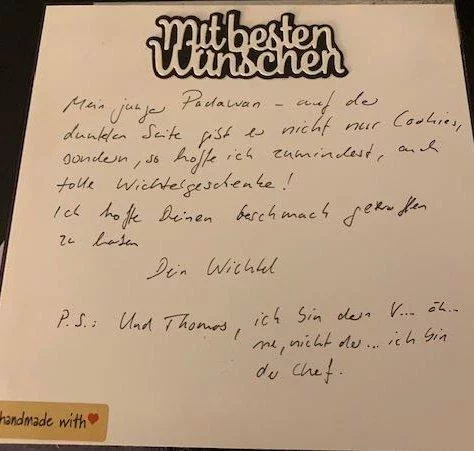 Mit besten
Wünschen
Mein junger Padawan – auf der
dunklen Seite gibt es nicht nur Cookies,
sondern, so hoffe ich zumindest, auch
tolle Wichtelgeschenke!
Ich hoffe Deinen Geschmack getroffen
zu haben
Dein Wichtel
P.S.: Und Thomas, ich bin dein V... äh..
ne, nicht der... ich bin
der Chef.
handmade with